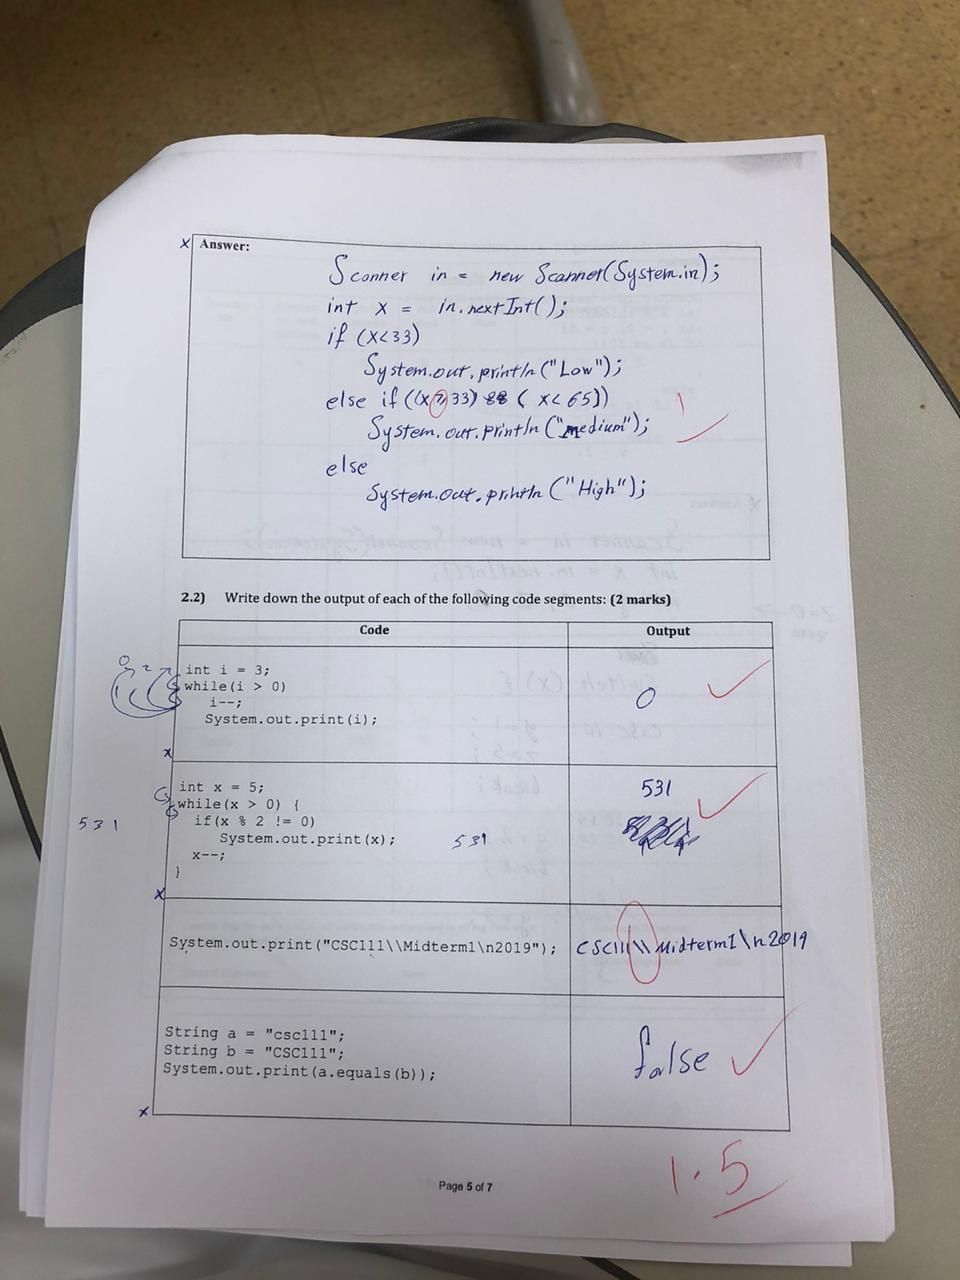 x Answer:
Scanner in = new Scanner(System.in);
int x = in.nextInt();
if (x<33)
System.out.println("Low");
else if ((x>33) && (x<65))
System.out.println("medium");
1
else
System.out.println("High");
2.2) Write down the output of each of the following code segments: (2 marks)
Code Output
int i = 3;
while(i > 0)
i--;
System.out.print(i);
0
x
int x = 5;
while(x > 0) {
if(x % 2 != 0)
System.out.print(x);
x--;
}
531
531
531
x
System.out.print("CSC111\\Midterm1\n2019");
CSC111\\Midterm1\n2019
String a = "csc111";
String b = "CSC111";
System.out.print(a.equals(b));
false
x
1.5
Page 5 of 7